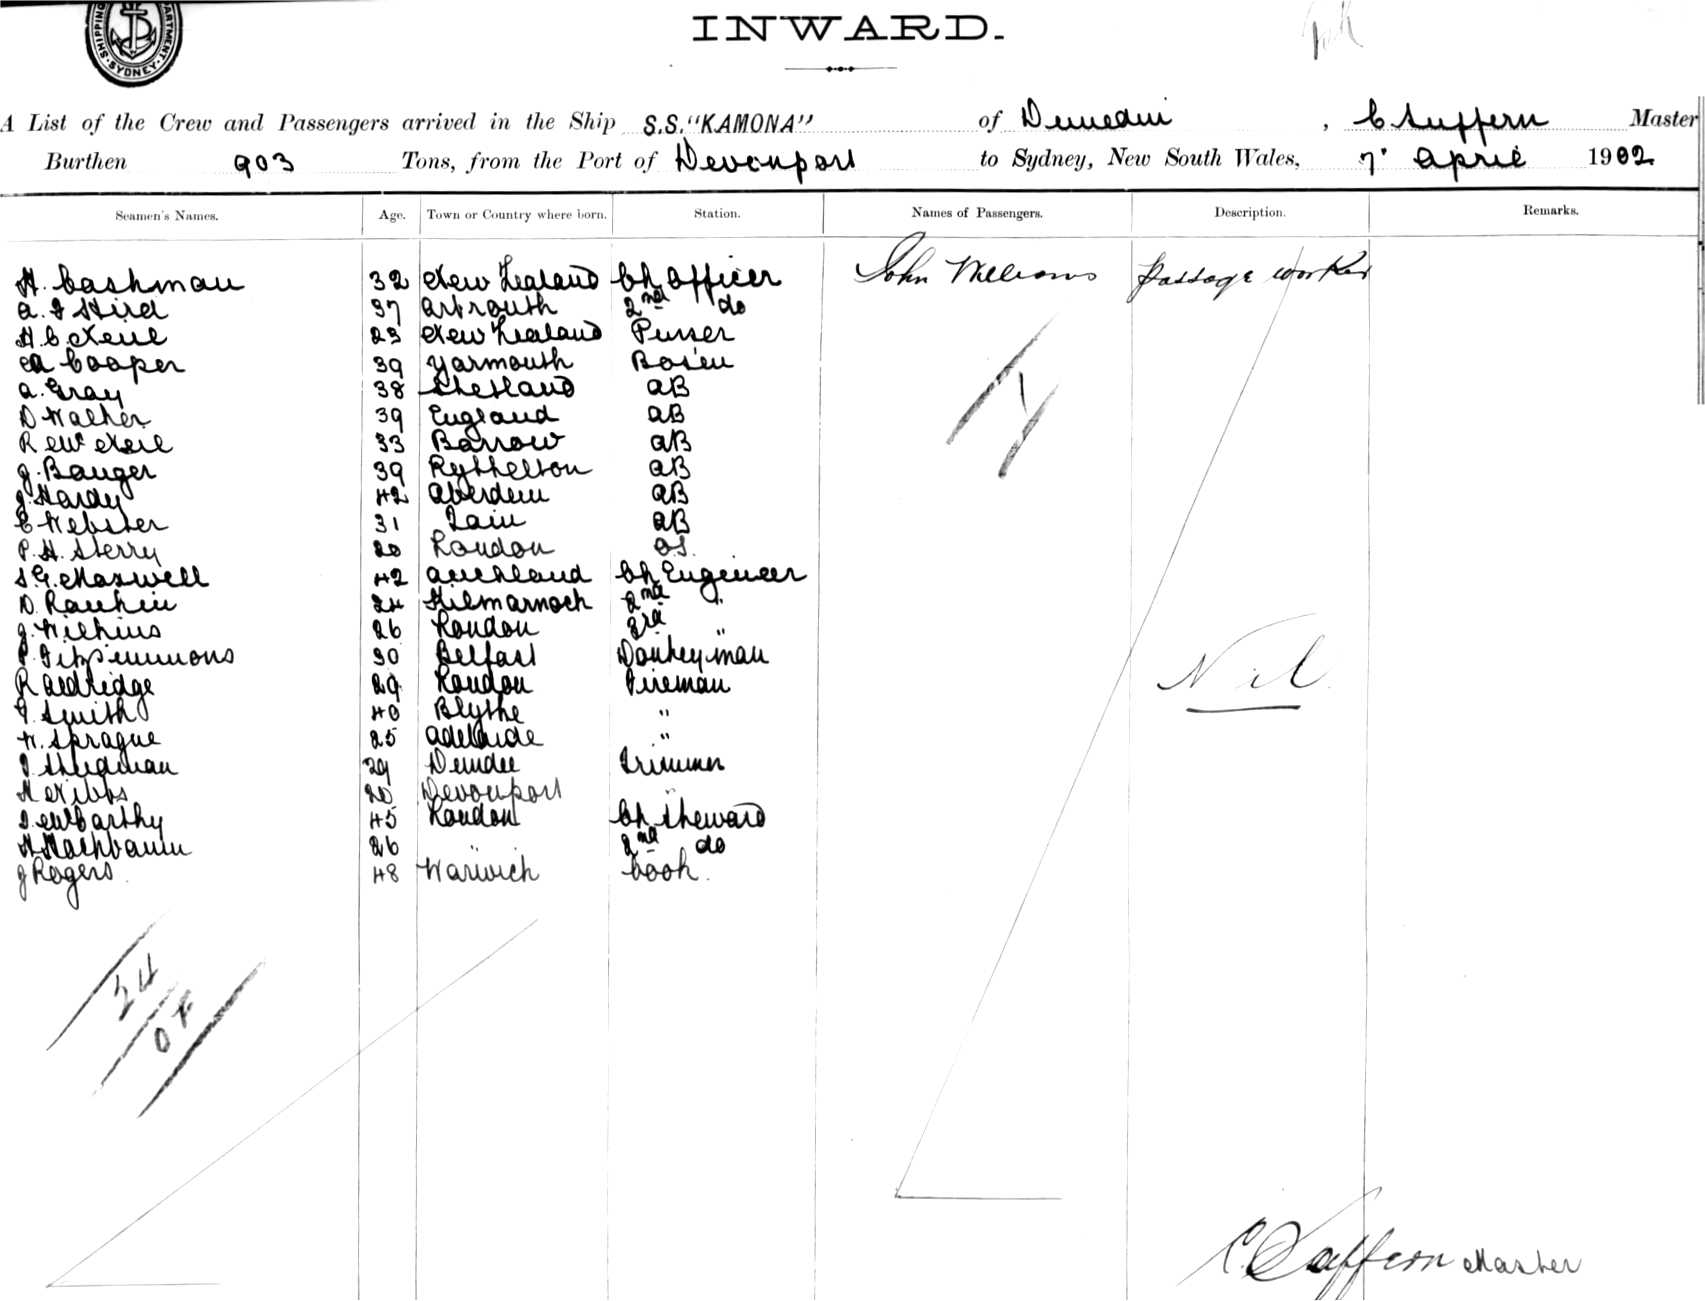 SHIPPING DEPARTMENT · SYDNEY ·
INWARD.
A List of the Crew and Passengers arrived in the Ship S.S. "KAMONA" of Dunedin, C Suffern Master
Burthen 903 Tons, from the Port of Devonport to Sydney, New South Wales, 7' April 1902
Seamen's Names. Age. Town or Country where born. Station. Names of Passengers. Description. Remarks.
H. Cashman 32 New Zealand Ch Officer John Williams Passage worker
A. J Hird 37 Arbroath 2nd do
H C Neill 23 New Zealand Purser
M Cooper 39 Yarmouth Bos'en
A. Gray 38 Shetland AB
D Walker 39 England AB
R McNeil 33 Barrow AB
J. Banger 39 AB
J. Hardy 42 Aberdeen AB
C Webster 31 Tain AB
P. H. Sterry 20 London OS.
S. G. Maxwell 42 Auckland Ch Engineer
D. Rankin 24 Kilmarnock 2nd "
J. Wilkins 26 London 3rd "
P. Fitzsimmons 30 Belfast Donkeyman
R Aldridge 29 London Fireman
J. Smith 40 Blythe "
W. Sprague 25 Adelaide "
J Stedman 29 Dundee Trimmer
H Nibbs 20 Devonport "
J McCarthy 45 London Ch Steward
H Hockbaum 26 " 2nd do
J Rogers 48 Warwick Cook.
Nil
24
C. Suffern Master